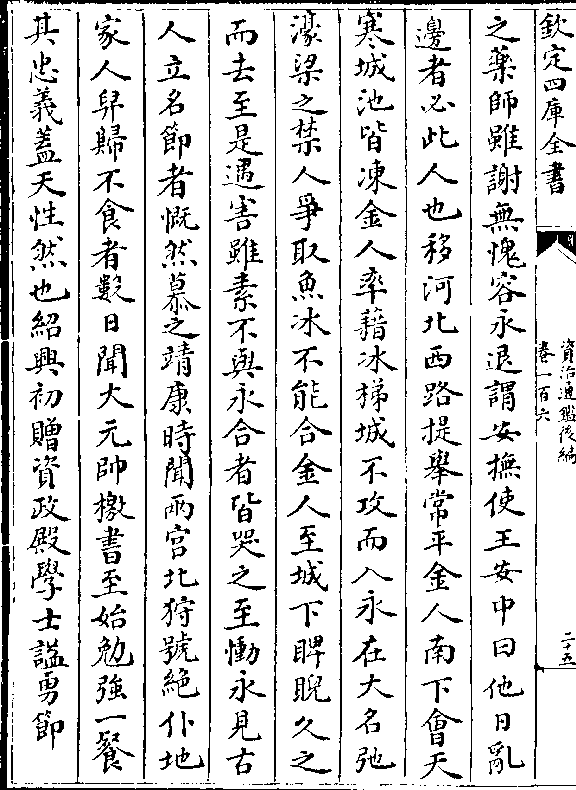 欽定四庫全書
資治通鑑後編
卷一百六
二十五
之藥師雖謝無愧容永退謂安撫使王安中曰他日亂
邊者必此人也移河北西路提舉常平金人南下會天
寒城池皆凍金人率藉冰梯城不攻而入永在大名弛
濠梁之禁人爭取魚冰不能合金人至城下睥睨久之
而去至是遇害雖素不與永合者皆哭之至慟永見古
人立名節者慨然慕之靖康時聞兩宮北狩號絶仆地
家人舁歸不食者數日聞大元帥檄書至始勉強一餐
其忠義蓋天性然也紹興初贈資政殿學士諡勇節